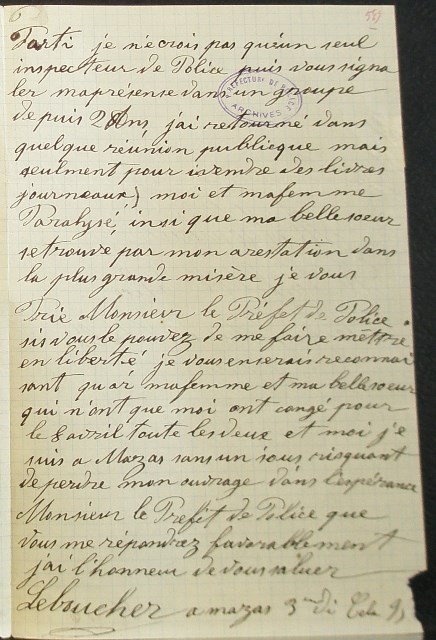 6
Parti je n'ecrois pas qu'eun seul
inspecteur de Police puis vous signa
ler maprésense dans un groupe
de puis 2 Ans, j'ai retourné dans
quelque réunion publicque mais
seulment pour ivendre des livres
journeaux) moi et mafemme
Paralysé, insi que ma bellesoeur
setrouve par mon arestation dans
la plus grande misère je vous
Prie Monsieur le Préfet de Police
sis vous le pouvez de me faire mettre
en liberté je vous enserais reconnai
sant quar mafemme et ma bellesoeur
qui n'ont que moi ont congé pour
le 8 avril toute les deux et moi je
suis a Mazas sans un sous risquant
de perdre mon ouvrage dans l'espérance
Monsieur le Prefet de Police que
vous me répondrez favorablement
j'ai l'honneur de vous saluer
Leboucher a mazas 3
PREFECTURE DE
ARCHIVES